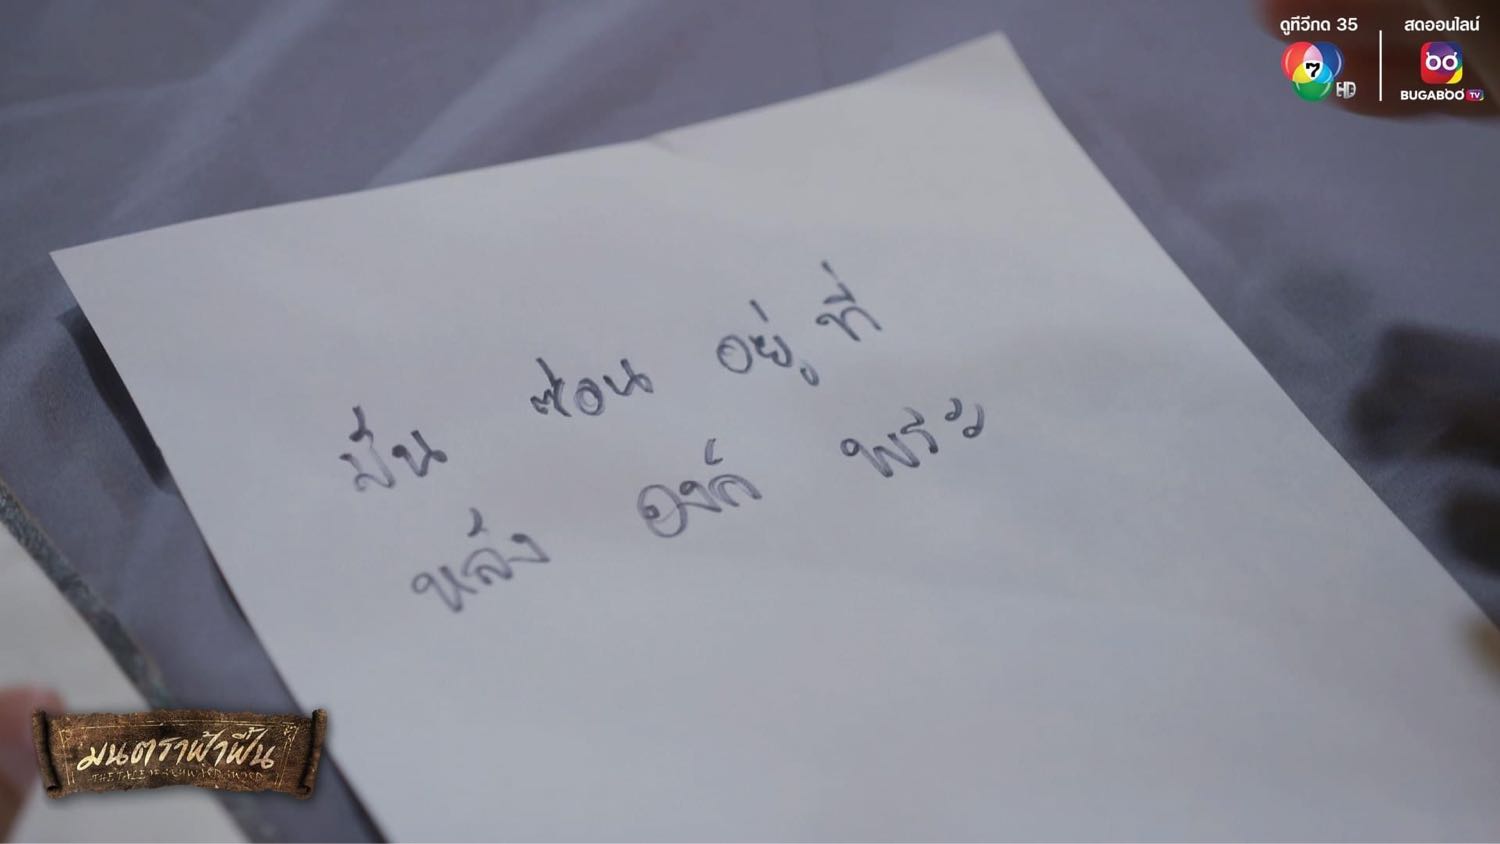 ดูทีวีกด 35
สดออนไลน์
7
HD
BUGABOO TV
ปืน ซ่อน อยู่ ที่
หลัง องค์ พระ
มนตราฟ้าฟื้น